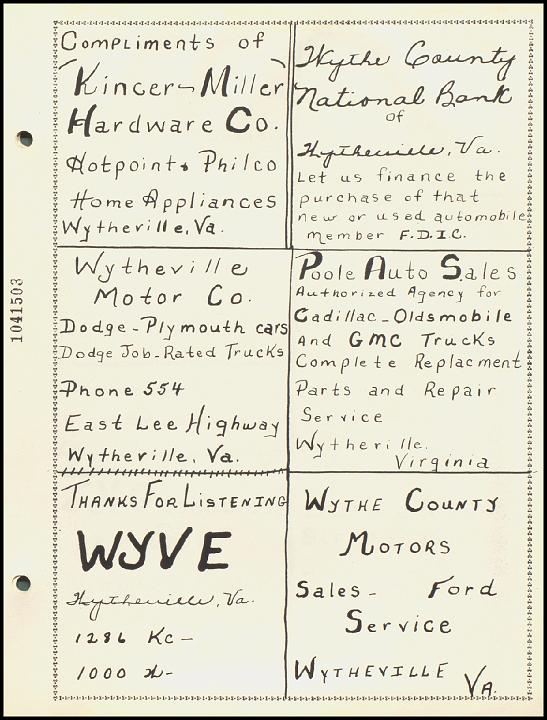 Compliments of
Kincer-Miller
Hardware Co.
Hotpoint & Philco
Home Appliances
Wytheville, Va.
Wythe County
National Bank
of
Wytheville, Va.
Let us finance the
purchase of that
new or used automobile
Member F.D.I.C.
Wytheville
Motor Co.
Dodge-Plymouth cars
Dodge Job-Rated Trucks
Phone 554
East Lee Highway
Wytheville, Va.
Poole Auto Sales
Authorized Agency for
Cadillac-Oldsmobile
And GMC Trucks
Complete Replacment
Parts and Repair
Service
Wytheville,
Virginia
THANKS FOR LISTENING
WYVE
Wytheville, Va.
1286 Kc-
1000
WYTHE COUNTY
MOTORS
Sales- Ford
Service
WYTHEVILLE
VA.
1041503